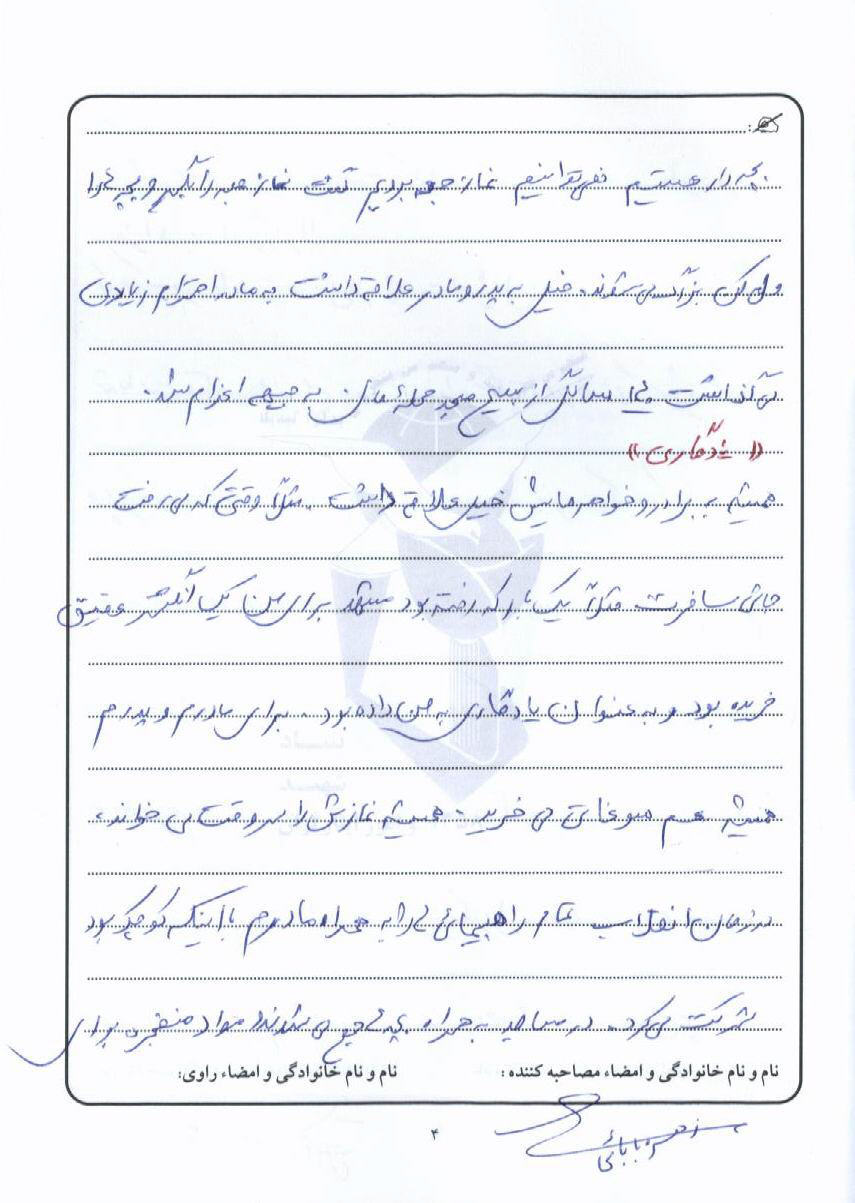 بچه دار هستیم نمی توانیم نماز جمعه برویم گفت نماز جمعه را بگیرم و بچه ها را
ول کن بزرگ می شوند. خیلی به پدر و مادر علاقه داشت به مادر احترام زیادی
می گذاشت سالگی از بسیج مسجد محله مان به جبهه اعزام شد.
«یادگاری»
همیشه به برادر و خواهرهایش خیلی علاقه داشت. مثلاً وقتی که می رفت
جائی مسافرت مثلاً یک بار که رفته بود مشهد برای من یک انگشتر عقیق
خریده بود و به عنوان یادگاری به من داده بود. برای مادرم و پدرم
همیشه هم سوغاتی می خرید. همیشه نمازش را سر وقت می خواند،
در زمان انقلاب تمام راهپیمائی ها را به همراه مادرم با اینکه کوچک بود
شرکت می کرد. در مساجد به همراه بچه ها جمع می شدند مواد منفجره برای
نام و نام خانوادگی و امضاء مصاحبه کننده : نام و نام خانوادگی و امضاء راوی:
بابائی
۴